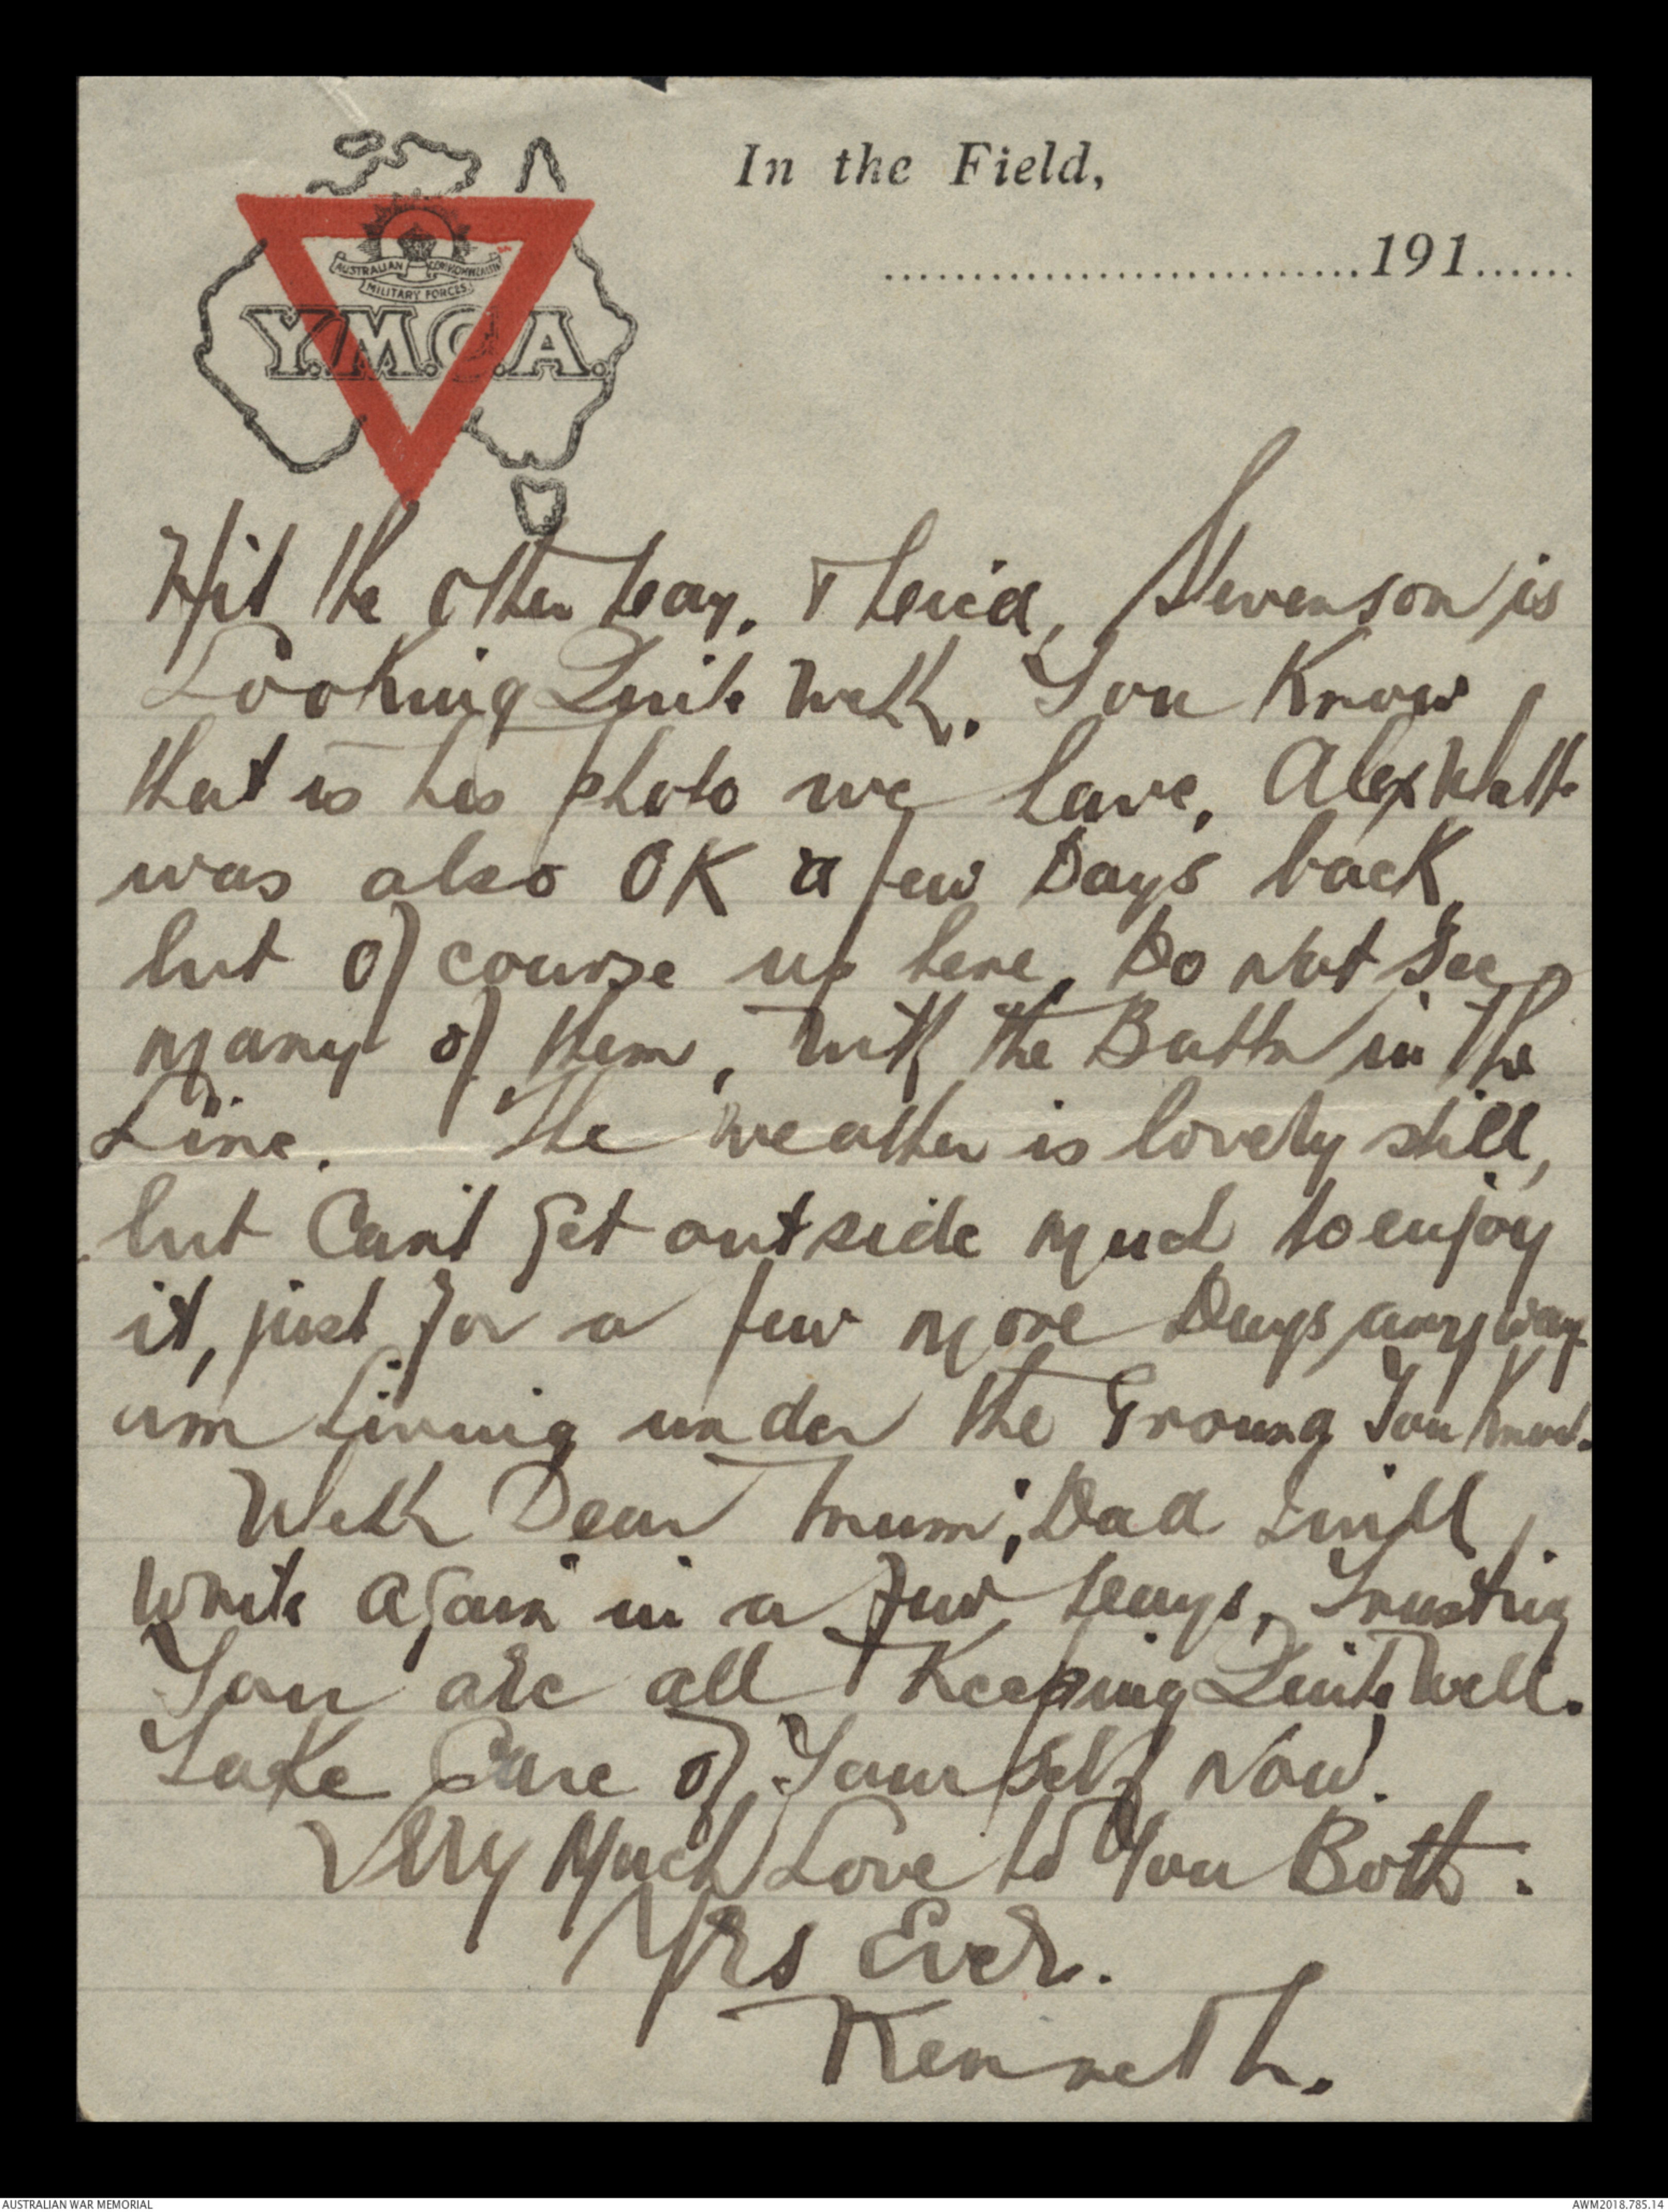 In the Field,
191
AUSTRALIAN COMMONWEALTH
MILITARY FORCES
Y.M.C.A.
Hit the other day, Stevenson is
Looking Quite Well. You Know
that is his photo we have, Alex Watt
was also OK a few Days back
but of course up here, Do Not See
Many of them, with the Battn in the
Line. The weather is lovely still,
but Can't Get outside Much to enjoy
it, just for a few More Days anyway
am Living under the Ground You Know.
Well Dear Mum, Dad I will
Write Again in a few days, Trusting
You are all Keeping Quite Well.
Take Care of Yourself Now.
Very Much Love to You Both.
Yrs Ever.
Kenneth.
AUSTRALIAN WAR MEMORIAL
AWM2018.785.14